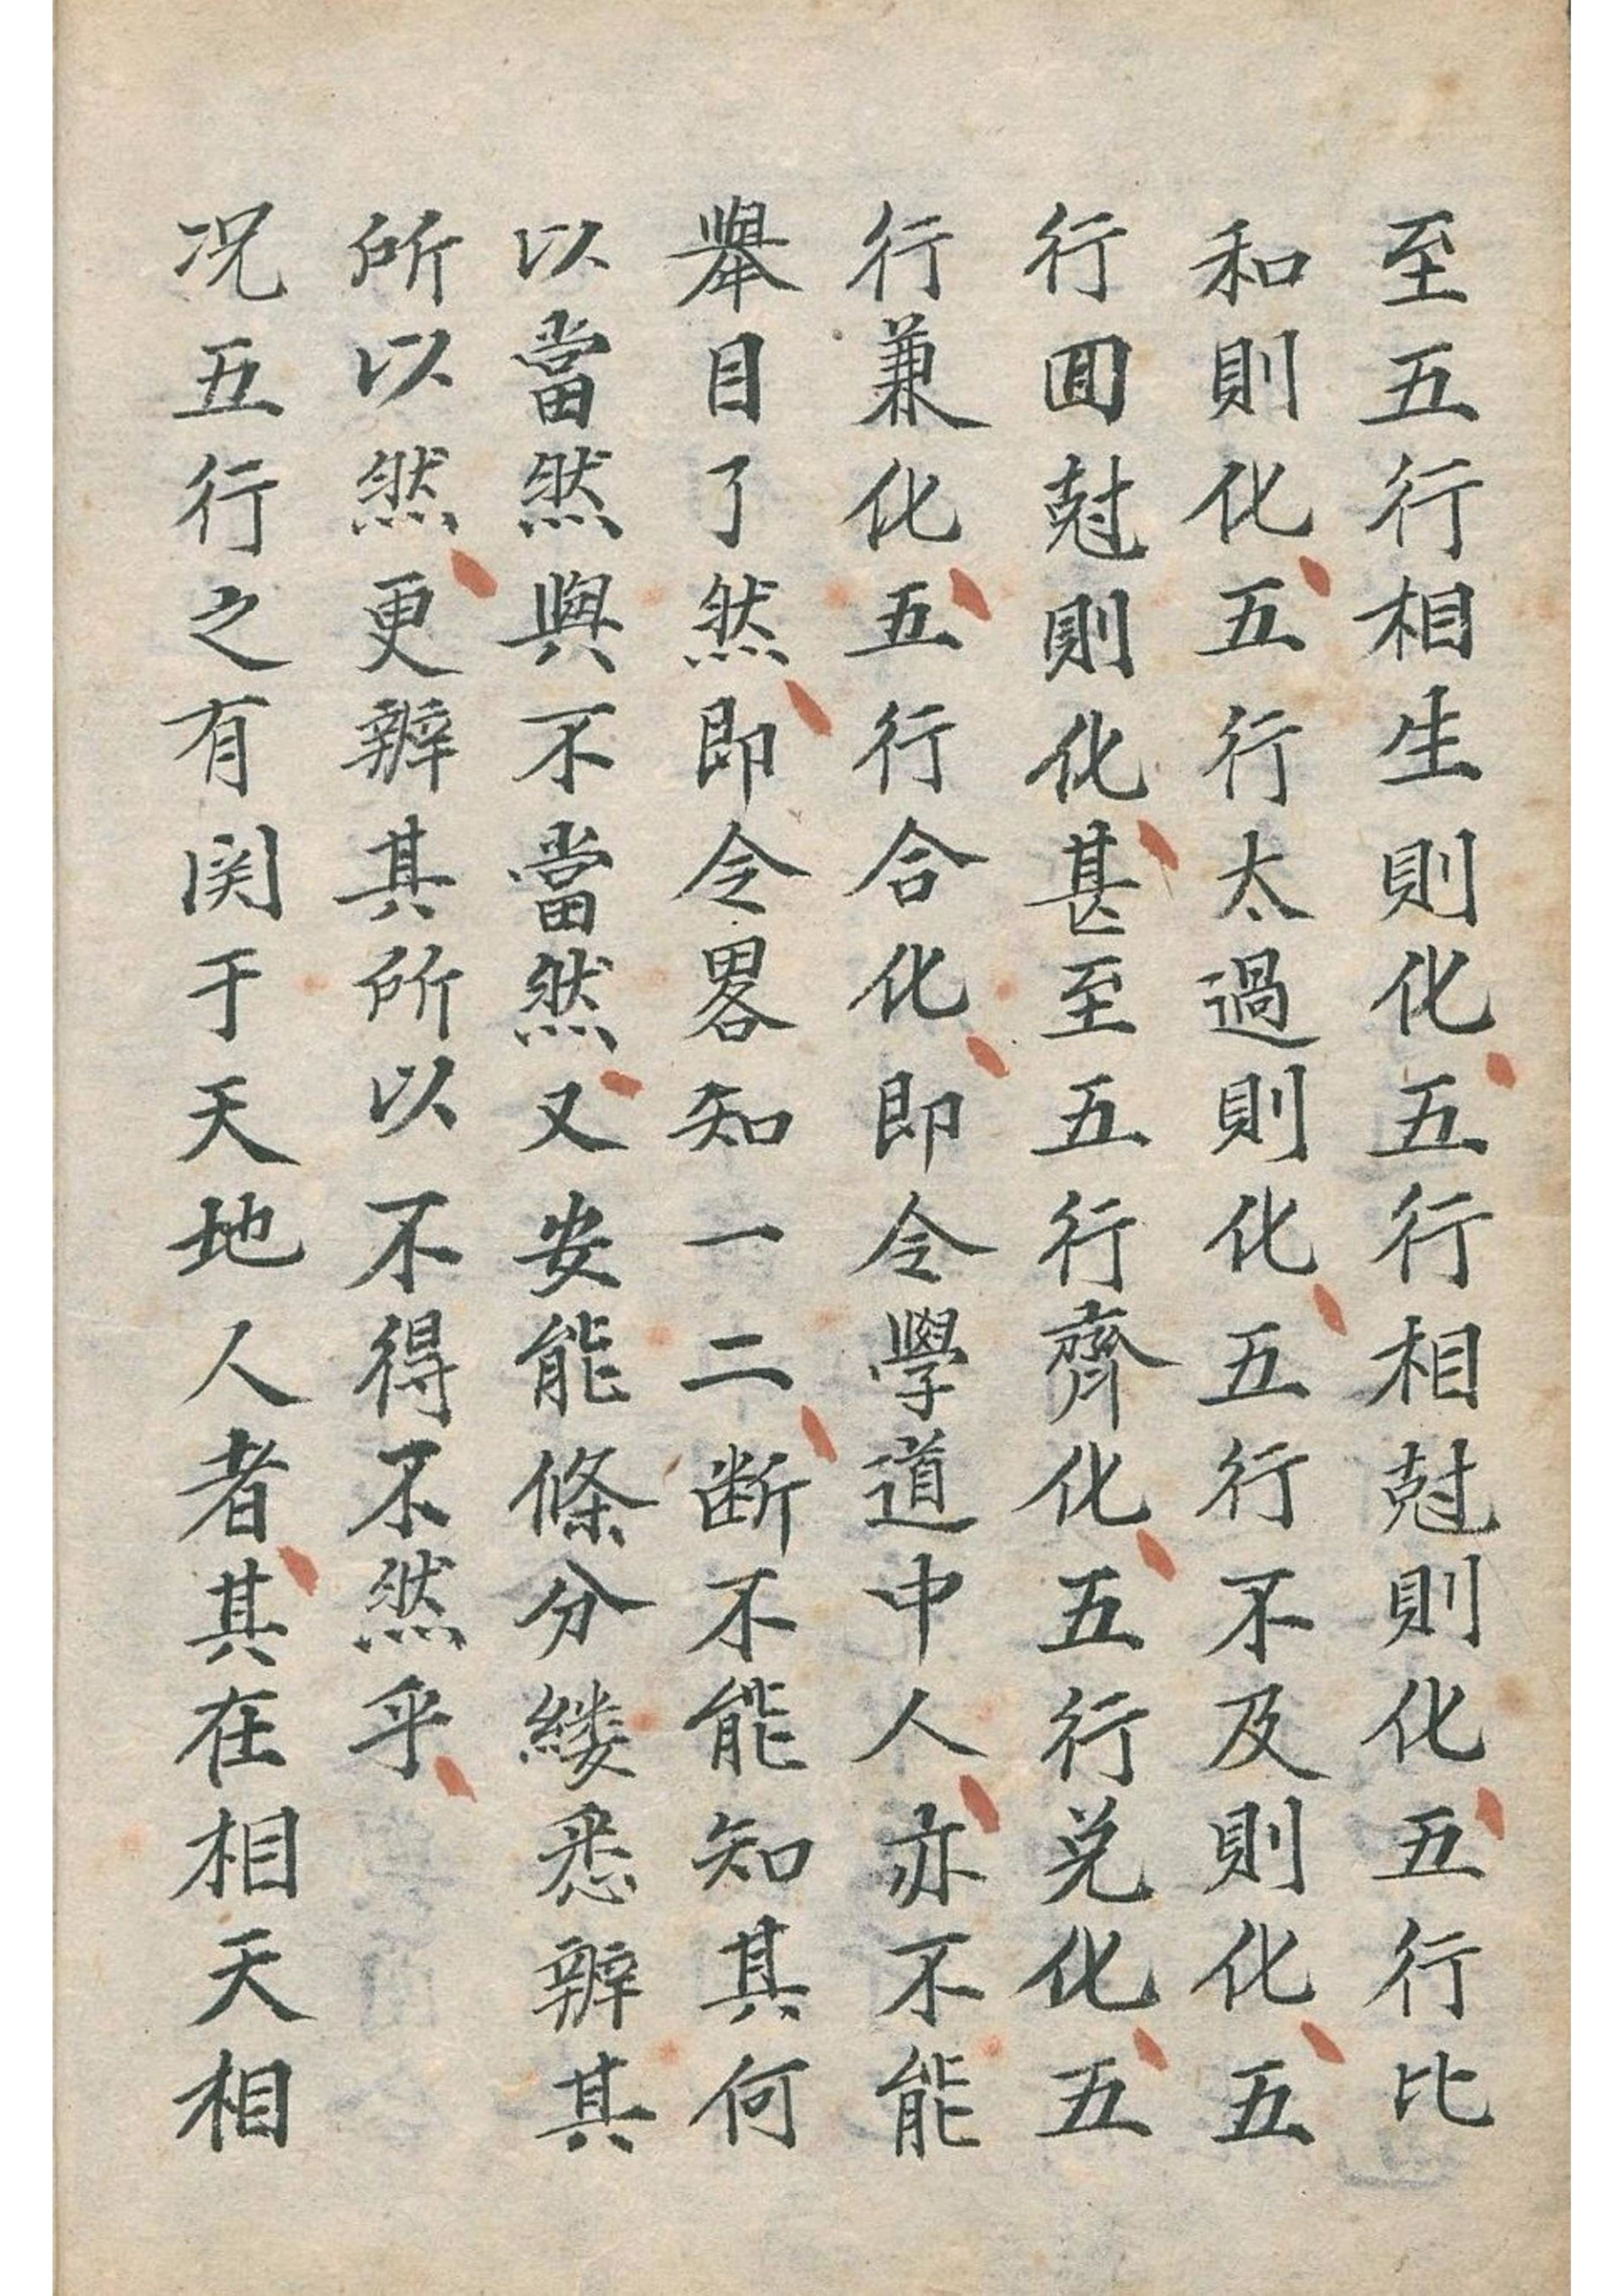 至五行相生則化五行相尅則化五行比
和則化五行太過則化五行不及則化五
行囬尅則化甚至五行齊化五行兑化五
行兼化五行合化即令學道中人亦不能
舉目了然即令畧知一二断不能知其何
以當然與不當然又安能條分縷悉辨其
所以然更辨其所以不得不然乎
况五行之有関于天地人者其在相天相